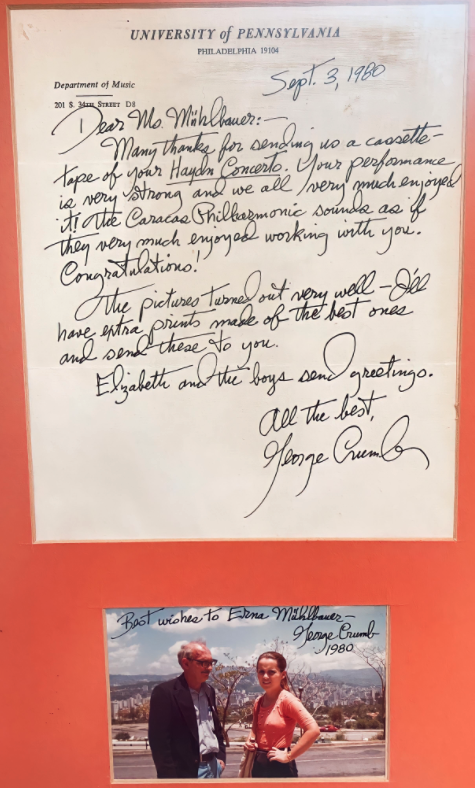 UNIVERSITY of PENNSYLVANIA
PHILADELPHIA 19104
Sept. 3, 1980
Department of Music
201 S. 34TH STREET D8
Dear Ms. Mühlbauer:—
Many thanks for sending us a cassette-
tape of your Haydn Concerto. Your performance
is very strong and we all very much enjoyed
it! The Caracas Philharmonic sounds as if
they very much enjoyed working with you.
Congratulations!
The pictures turned out very well – I'll
have extra prints made of the best ones
and send these to you.
Elizabeth and the boys send greetings.
All the best,
George Crumb
Best wishes to Erna Mühlbauer—
George Crumb
1980